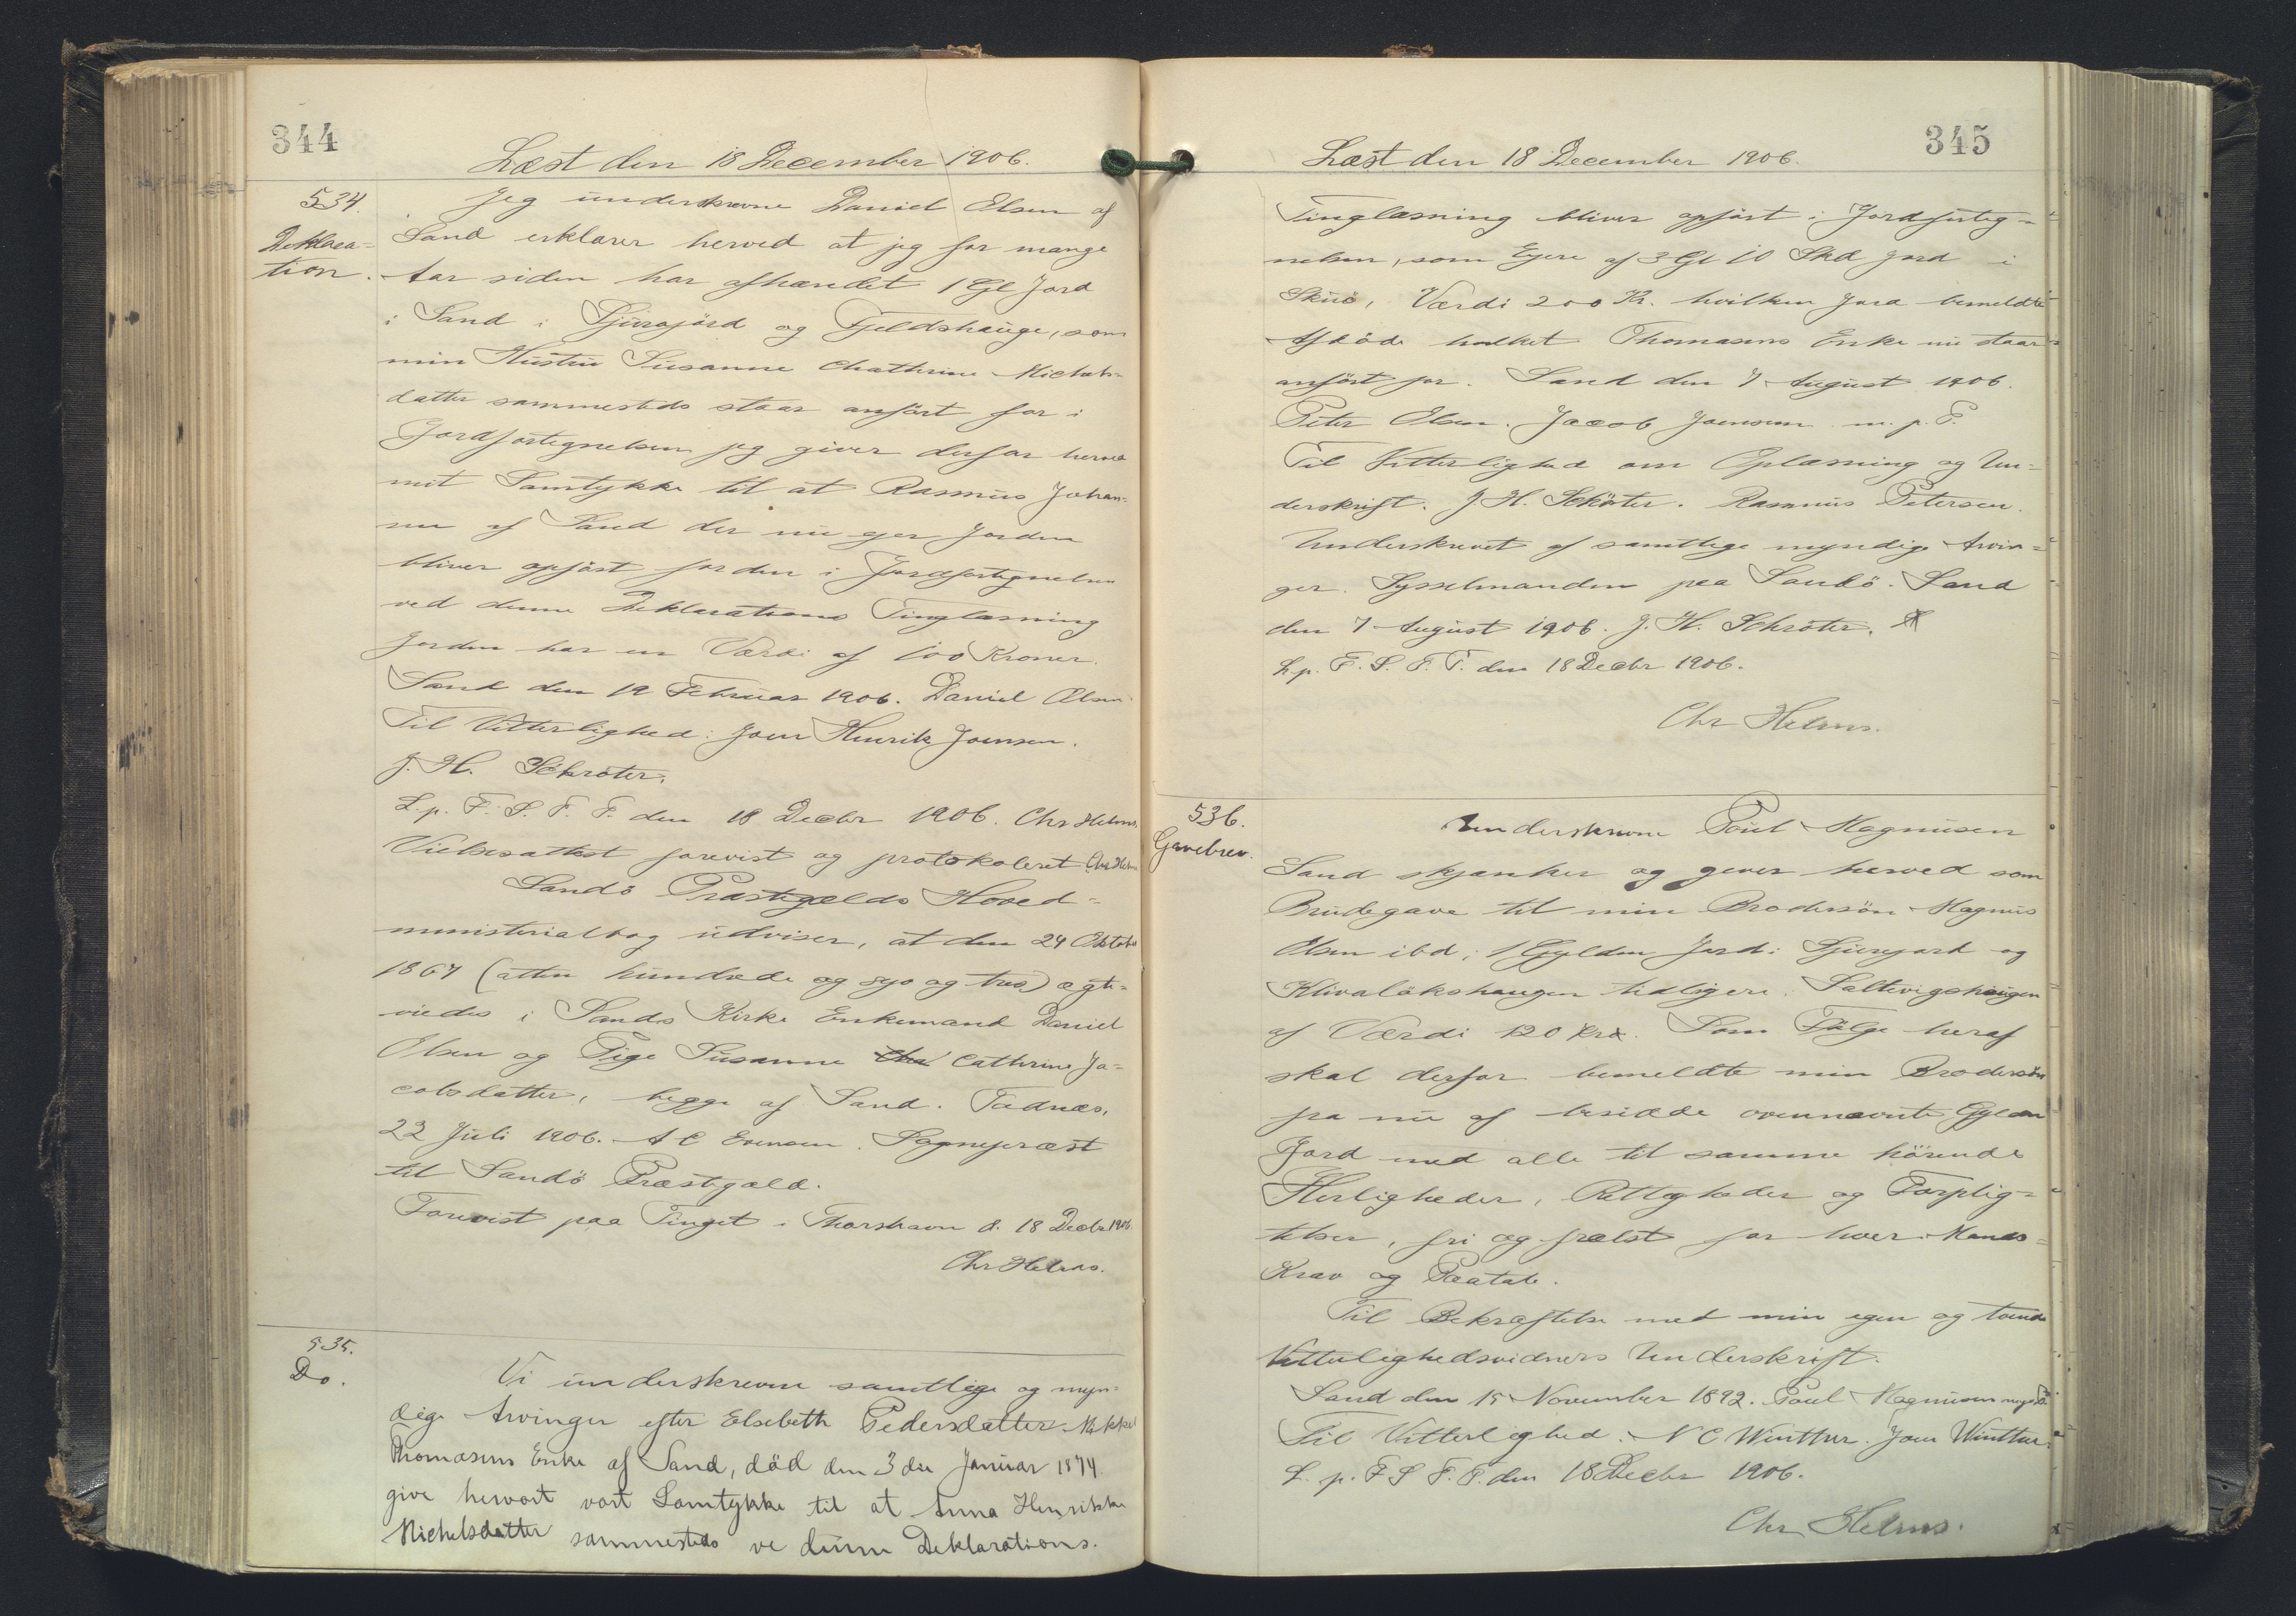 344
Læst den 18 December 1906.
534.
Deklara=
tion.
Jeg underskrevne Daniel Olsen af
Sand erklærer herved at jeg for mange
Aar siden har afhændet 1 Gl Jord
i Sand i Sjúrajörd og Fjeldshauge, som
min Hustru Susanne Chathrine Michels=
datter sammesteds staar anført for i
Jordfortegnelsen jeg giver derfor herved
mit Samtykke til at Rasmus Johan=
sen af Sand der nu ejer Jorden
bliver opført for den i Jordfortegnelsen
ved denne Deklarations Tinglæsning
Jorden har en Værdi af 100 Kroner.
Sand den 19 Februar 1906. Daniel Olsen.
Til Vitterlighed: Joen Henrik Joensen.
J. H. Schrøter.
L. p. F. S. F. T. den 18 Decbr 1906. Chr Helms.
Vielsesattest forevist og protokoleret Chr Helms
Sandö Præstegælds Hoved=
ministerialbog udviser, at den 24 Oktober
1867 (atten hundrede og syv og tres) ægte=
viedes i Sands Kirke Enkemand Daniel
Olsen og Pige Susanne Cathrine Ja=
cobsdatter, begge af Sand. Todnæs,
22 Juli 1906. A C Evensen. Sognepræst
til Sandö Præstegæld.
Forevist paa Tinget i Thorshavn d. 18 Decbr 1906.
Chr Helms.
535.
Do.
Vi underskrevne samtlige og myn=
dige Arvinger efter Elsebeth Pedersdatter Mikkel
Thomasens Enke af Sand, död den 3die Januar 1874.
give hervort vort Samtykke til at Anna Henrikke
Michelsdatter sammesteds ve denne Deklarations.
345
Læst den 18 December 1906.
Tinglæsning bliver opført i Jordforteg=
nelsen, som Ejere af 3 Gl 10 Skd Jord i
Skuö, Værdi 200 Kr. hvilken Jord bemeldte
Afdöde Thomasens Enke nu staar
anført for. Sand den 7 August 1906.
Peter Olsen. Jacob Joensen m. p. P.
Til Vitterlighed om Oplæsning og Un=
derskrift. J. H. Schöter. Rasmus Petersen.
Underskrevet af samtlige myndige Arvin=
ger. Sysselmanden paa Sandö. Sand
den 7 August 1906. J. H. Schrøter.
L. p. F. S. F. T. den 18 Decbr 1906.
Chr Helms.
536.
Gavebrev.
Underskrevne Poul Magnusen
Sand skjænker og giver herved som
Brudegave til min Brodersön Magnus
Olsen ibd; 1 Gylden Jord i Sjurejord og
Klivalökshaugen tidligere Saltevigshaugen
af Værdi 120 Kr. Som Følge heraf
skal derfor bemeldte min Brodersön
fra nu af besidde ovennævnte Gylden
Jord med alle til samme hörende
Herligheder, Rettigheder og Forplig=
telser, fri og frelst for hver Mands
Krav og Paatale.
Til Bekræftelse med min egen og tvende
Vitterlighedsvidners Underskrift.
Sand den 15 November 1892. Poul Magnusen
Til Vitterlighed: N C Winther. Joen Winther.
L. p. F S F. T. den 18 Decbr 1906.
Chr Helms.